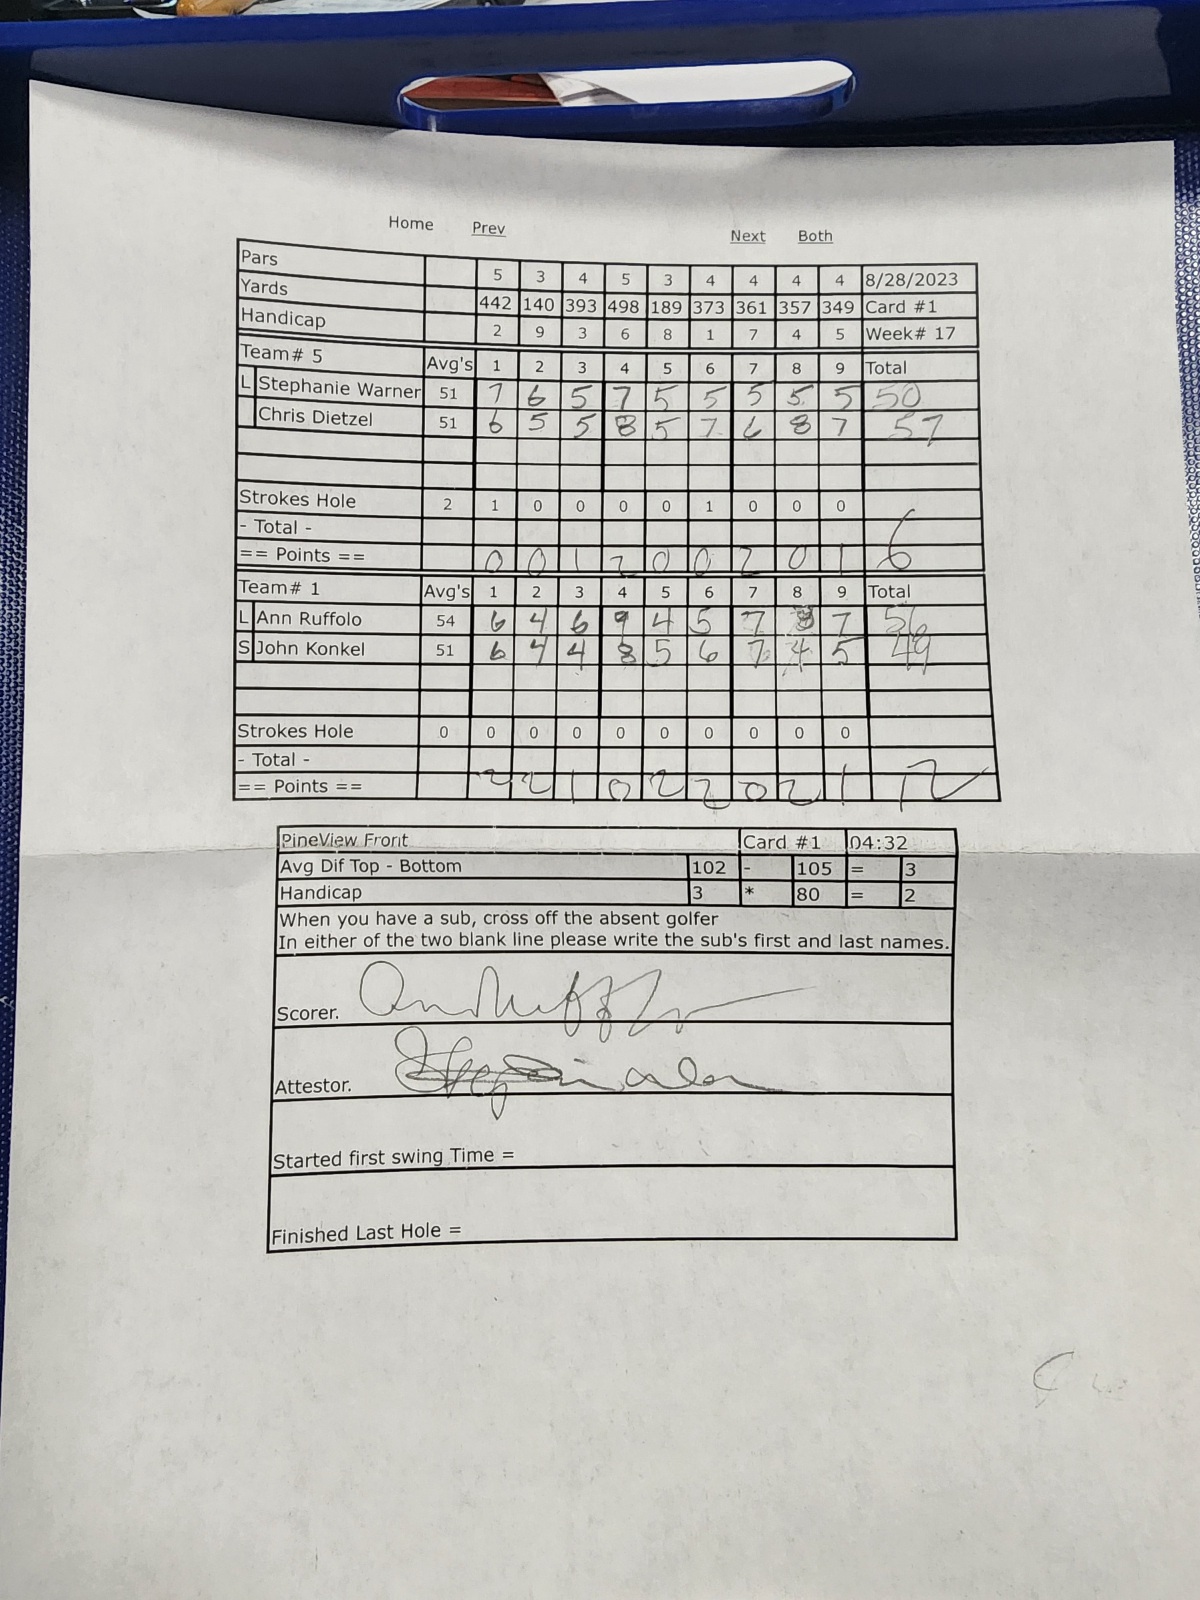 Home Prev Next Both
Pars 5 3 4 5 3 4 4 4 4 8/28/2023
Yards 442 140 393 498 189 373 361 357 349 Card #1
Handicap 2 9 3 6 8 1 7 4 5 Week# 17
Team# 5 Avg's 1 2 3 4 5 6 7 8 9 Total
L Stephanie Warner 51 7 6 5 7 5 5 5 5 5 50
Chris Dietzel 51 6 5 5 8 5 7 6 8 7 57
Strokes Hole 2 1 0 0 0 0 1 0 0 0
- Total -
== Points == 0 0 1 2 0 0 2 0 1 6
Team# 1 Avg's 1 2 3 4 5 6 7 8 9 Total
L Ann Ruffolo 54 6 4 6 9 4 5 7 8 7 56
S John Konkel 51 6 4 4 8 5 6 7 4 5 49
Strokes Hole 0 0 0 0 0 0 0 0 0 0
- Total -
== Points == 2 2 1 0 2 2 0 2 1 12
PineView Front Card #1 04:32
Avg Dif Top - Bottom 102 - 105 = 3
Handicap 3 * 80 = 2
When you have a sub, cross off the absent golfer
In either of the two blank line please write the sub's first and last names.
Scorer. Ann Ruffolo
Attestor.
Started first swing Time =
Finished Last Hole =